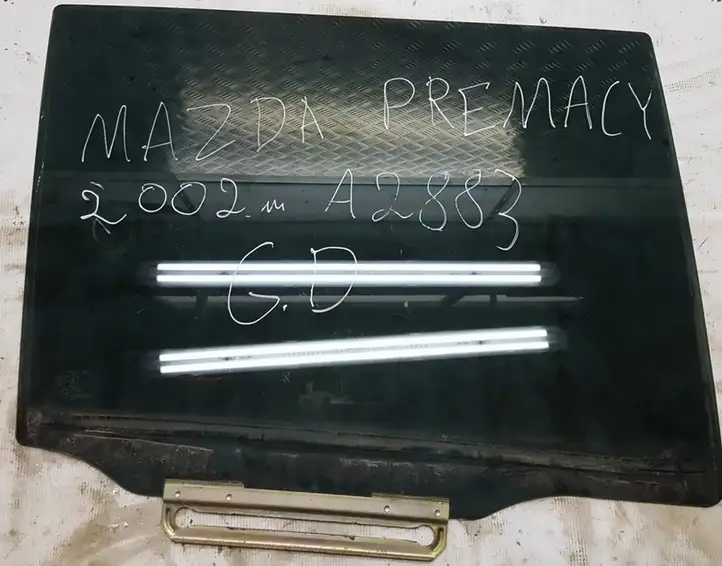 MAZDA PREMACY
2002.m A2883
G.D